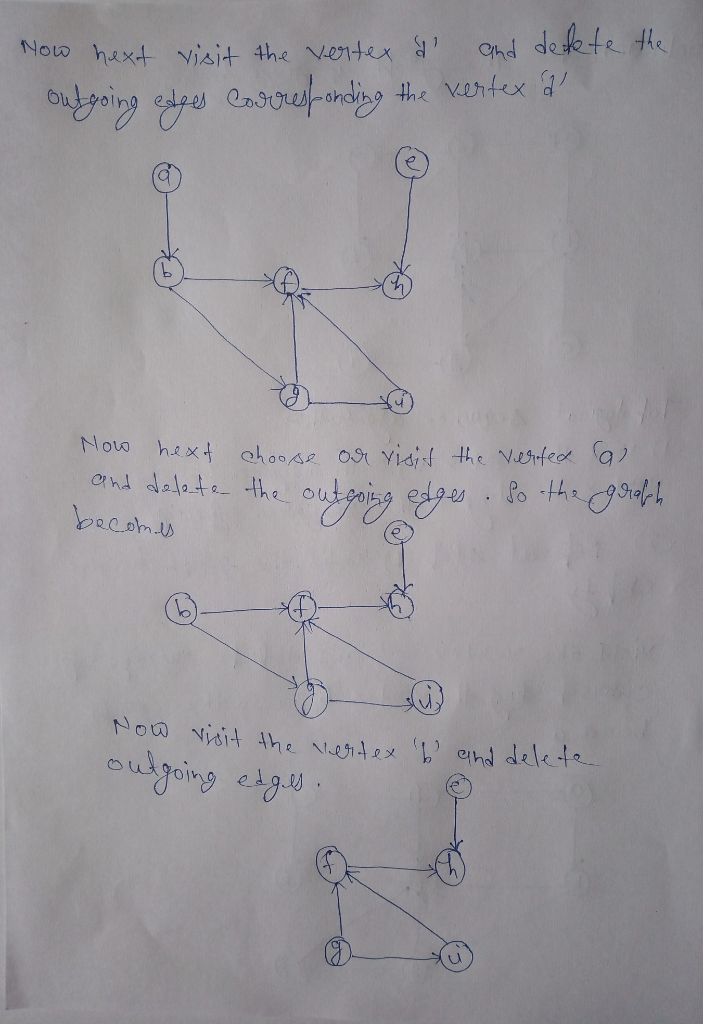 Now next visit the vertex 'd' and delete the
outgoing edges corresponding the vertex 'd'
a
e
b
f
h
g
i
Now next choose or visit the vertex 'a'
and delete the outgoing edges. So the graph
becomes
e
b
f
h
g
i
Now visit the vertex 'b' and delete
outgoing edges.
e
f
h
g
i